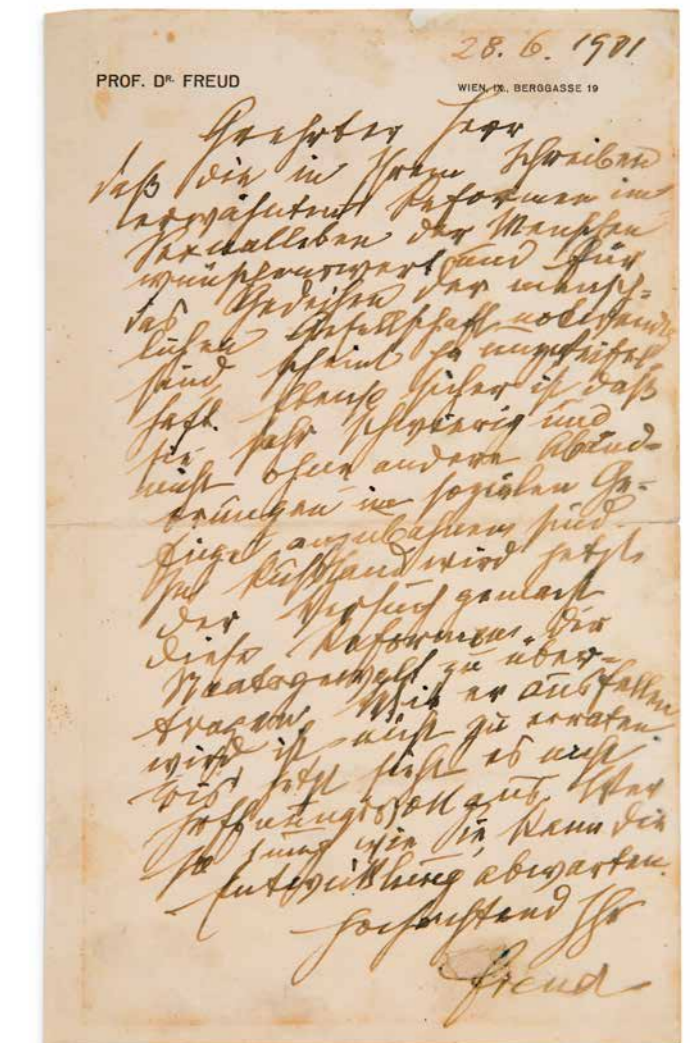 28. 6. 1931
PROF. DR. FREUD
WIEN, IX., BERGGASSE 19
Geehrter Herr
daß die in Ihrem Schreiben
erwähnten Reformen im
Sexualleben der Menschen
wünschenswert und für
das Gedeihen der mensch-
lichen Gesellschaft notwendig
sind, scheint ja unzweifel-
haft. Ebenso sicher ist daß
sie sehr schwierig und
nicht ohne andere Abänd-
erungen im sozialen Ge-
füge anzubahnen sind.
In Rußland wird jetzt
der Versuch gemacht
diese Reformen der
Staatsgewalt zu über-
tragen. Wie er ausfallen
wird ist nicht zu erraten
bis jetzt sieht es nicht
hoffnungsvoll aus. Wer
so jung wie Sie, kann die
Entwicklung abwarten.
Hochachtend Ihr
Freud